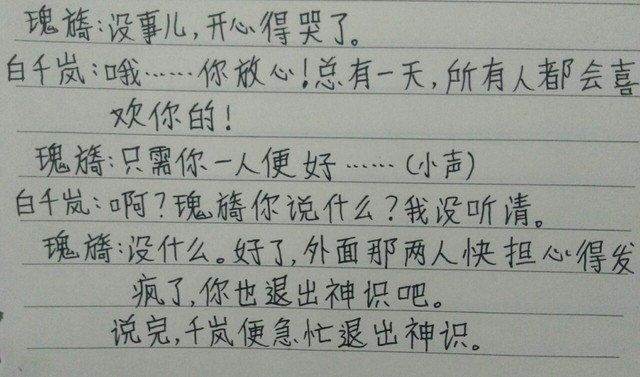 瑰旖:没事儿,开心得哭了。
白千岚:哦……你放心!总有一天,所有人都会喜
欢你的!
瑰旖:只需你一人便好……(小声)
白千岚:啊?瑰旖你说什么?我没听清。
瑰旖:没什么。好了,外面那两人快担心得发
疯了,你也退出神识吧。
说完,千岚便急忙退出神识。